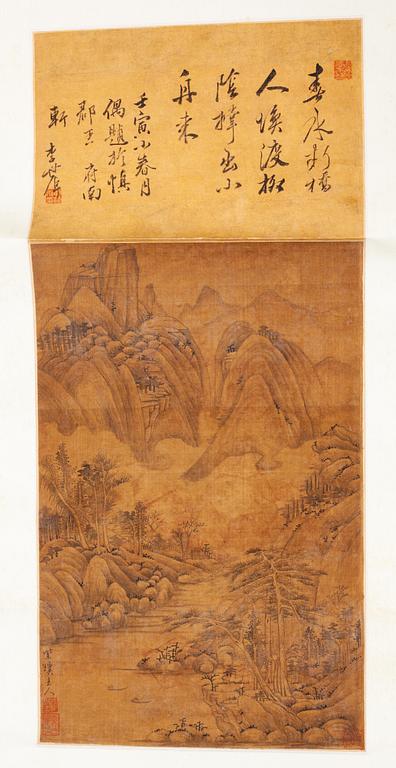 春水断橋
人喚渡柳
陰撑出小
舟来
壬寅小春月
偶題於慎
郡王府南
軒
主人